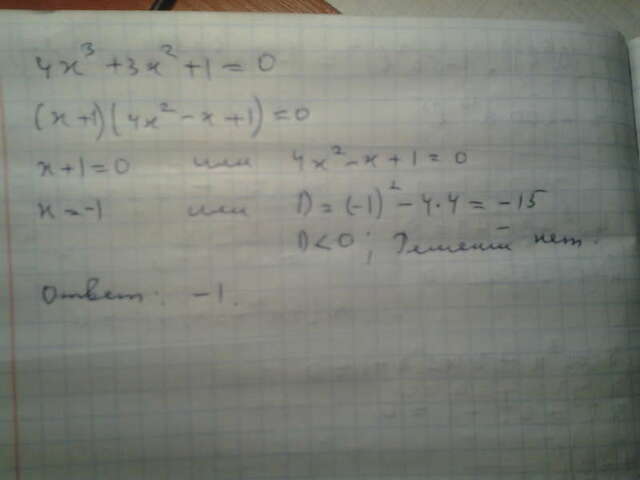 4x³ + 3x² + 1 = 0
(x+1)(4x² - x + 1) = 0
x+1=0 или 4x² - x + 1 = 0
x = -1 или D = (-1)² - 4·4 = -15
D<0; решений нет.
Ответ: -1.